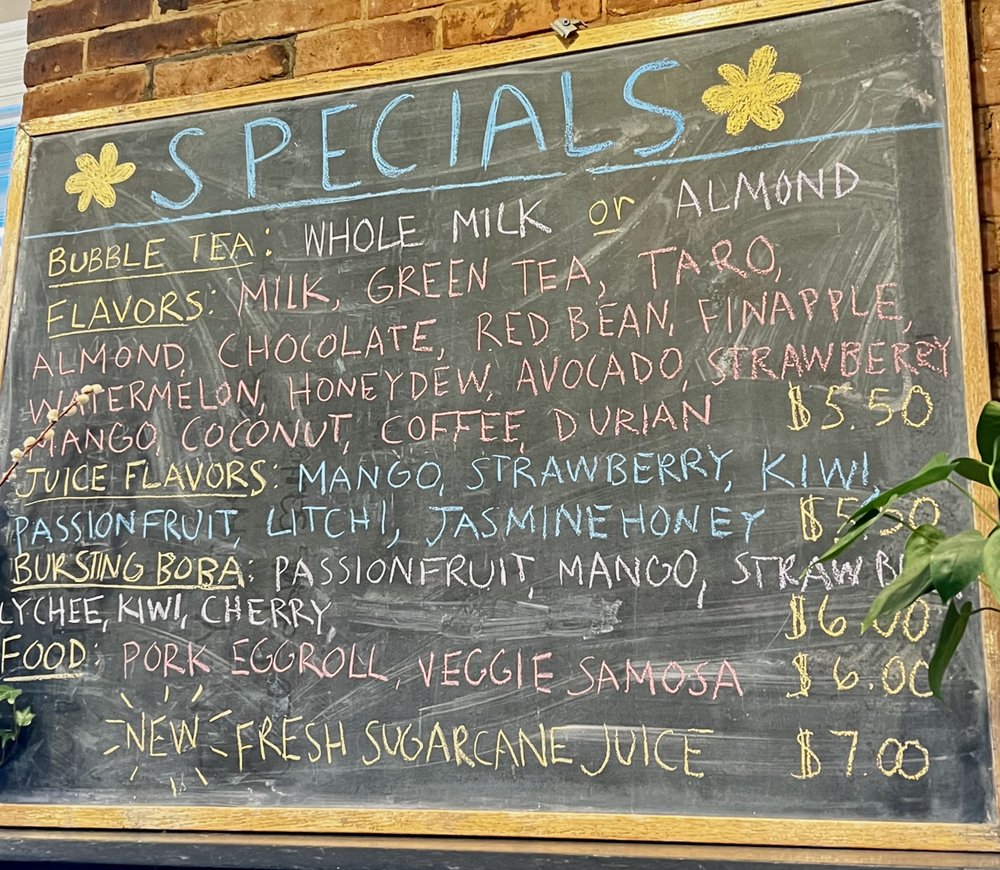 SPECIALS
BUBBLE TEA: WHOLE MILK or ALMOND
FLAVORS: MILK, GREEN TEA, TARO,
ALMOND, CHOCOLATE, RED BEAN, FINAPPLE,
WATERMELON, HONEYDEW, AVOCADO, STRAWBERRY
MANGO, COCONUT, COFFEE, DURIAN $5.50
JUICE FLAVORS: MANGO, STRAWBERRY, KIWI,
PASSIONFRUIT, LITCHI, JASMINE HONEY $5.50
BURSTING BOBA: PASSIONFRUIT, MANGO, STRAWB
LYCHEE, KIWI, CHERRY $6.00
FOOD: PORK EGGROLL, VEGGIE SAMOSA $6.00
NEW FRESH SUGARCANE JUICE $7.00